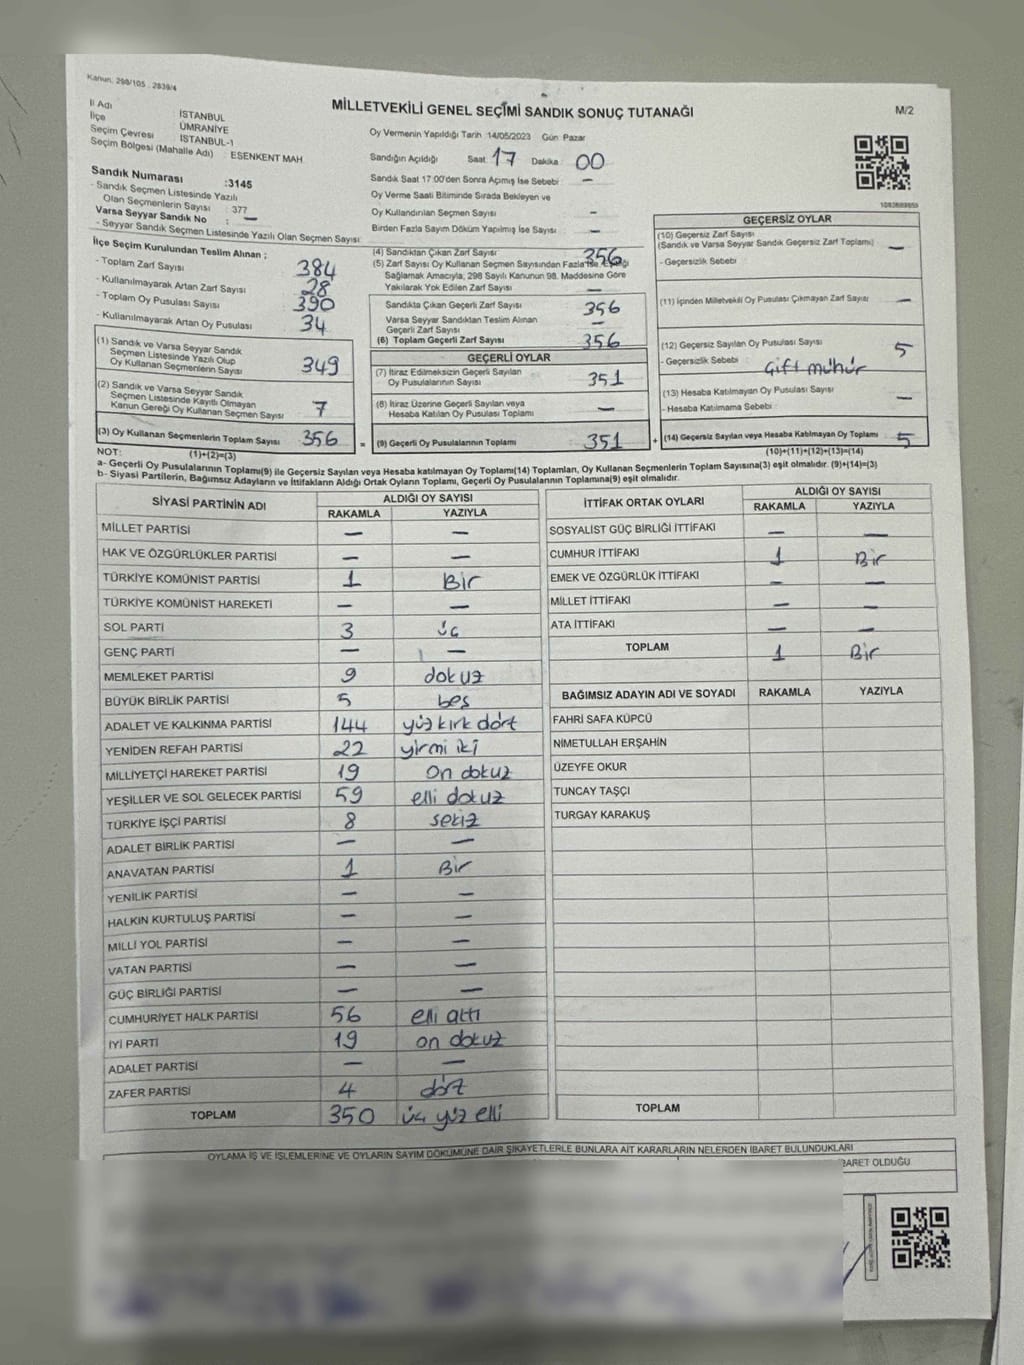 Kanun: 298/105 . 2839/4
MİLLETVEKİLİ GENEL SEÇİMİ SANDIK SONUÇ TUTANAĞI
M/2
İl Adı : İSTANBUL
İlçe : ÜMRANİYE
Seçim Çevresi : İSTANBUL-1
Seçim Bölgesi (Mahalle Adı) : ESENKENT MAH.
Sandık Numarası :3145
- Sandık Seçmen Listesinde Yazılı
Olan Seçmenlerin Sayısı : 377
Varsa Seyyar Sandık No : —
- Seyyar Sandık Seçmen Listesinde Yazılı Olan Seçmen Sayısı:
Oy Vermenin Yapıldığı Tarih 14/05/2023 Gün Pazar
Sandığın Açıldığı Saat: 17 Dakika: 00
Sandık Saat 17:00'den Sonra Açımış İse Sebebi : —
Oy Verme Saati Bitiminde Sırada Bekleyen ve
Oy Kullandırılan Seçmen Sayısı —
Birden Fazla Sayım Döküm Yapılmış İse Sayısı : —
1083689859
İlçe Seçim Kurulundan Teslim Alınan ;
- Toplam Zarf Sayısı 384
- Kullanılmayarak Artan Zarf Sayısı 28
- Toplam Oy Pusulası Sayısı 390
- Kullanılmayarak Artan Oy Pusulası 34
(1) Sandık ve Varsa Seyyar Sandık
Seçmen Listesinde Yazılı Olup
Oy Kullanan Seçmenlerin Sayısı 349
(2) Sandık ve Varsa Seyyar Sandık
Seçmen Listesinde Kayıtlı Olmayan
Kanun Gereği Oy Kullanan Seçmen Sayısı 7
(3) Oy Kullanan Seçmenlerin Toplam Sayısı 356 =
(4) Sandıktan Çıkan Zarf Sayısı 356
(5) Zarf Sayısı Oy Kullanan Seçmen Sayısından Fazla ise, Eşitliği
Sağlamak Amacıyla, 298 Sayılı Kanunun 98. Maddesine Göre
Yakılarak Yok Edilen Zarf Sayısı —
Sandıkta Çıkan Geçerli Zarf Sayısı 356
Varsa Seyyar Sandıktan Teslim Alınan
Geçerli Zarf Sayısı —
(6) Toplam Geçerli Zarf Sayısı 356
GEÇERLİ OYLAR
(7) İtiraz Edilmeksizin Geçerli Sayılan
Oy Pusulalarının Sayısı 351
(8) İtiraz Üzerine Geçerli Sayılan veya
Hesaba Katılan Oy Pusulası Toplamı —
(9) Geçerli Oy Pusulalarının Toplamı 351 +
GEÇERSİZ OYLAR
(10) Geçersiz Zarf Sayısı
(Sandık ve Varsa Seyyar Sandık Geçersiz Zarf Toplamı) —
- Geçersizlik Sebebi :
(11) İçinden Milletvekili Oy Pusulası Çıkmayan Zarf Sayısı —
(12) Geçersiz Sayılan Oy Pusulası Sayısı 5
- Geçersizlik Sebebi : Çift mühür
(13) Hesaba Katılmayan Oy Pusulası Sayısı —
- Hesaba Katılmama Sebebi :
(14) Geçersiz Sayılan veya Hesaba Katılmayan Oy Toplamı 5
NOT: (1)+(2)=(3)
(10)+(11)+(12)+(13)=(14)
a- Geçerli Oy Pusulalarının Toplamı(9) ile Geçersiz Sayılan veya Hesaba katılmayan Oy Toplamı(14) Toplamları, Oy Kullanan Seçmenlerin Toplam Sayısına(3) eşit olmalıdır. (9)+(14)=(3)
b- Siyasi Partilerin, Bağımsız Adayların ve İttifakların Aldığı Ortak Oyların Toplamı, Geçerli Oy Pusulalarının Toplamına(9) eşit olmalıdır.
SİYASİ PARTİNİN ADI ALDIĞI OY SAYISI
RAKAMLA YAZIYLA
MİLLET PARTİSİ — —
HAK VE ÖZGÜRLÜKLER PARTİSİ — —
TÜRKİYE KOMÜNİST PARTİSİ 1 Bir
TÜRKİYE KOMÜNİST HAREKETİ — —
SOL PARTİ 3 üç
GENÇ PARTİ — —
MEMLEKET PARTİSİ 9 dokuz
BÜYÜK BİRLİK PARTİSİ 5 beş
ADALET VE KALKINMA PARTİSİ 144 yüz kırk dört
YENİDEN REFAH PARTİSİ 22 yirmi iki
MİLLİYETÇİ HAREKET PARTİSİ 19 on dokuz
YEŞİLLER VE SOL GELECEK PARTİSİ 59 elli dokuz
TÜRKİYE İŞÇİ PARTİSİ 8 sekiz
ADALET BİRLİK PARTİSİ — —
ANAVATAN PARTİSİ 1 Bir
YENİLİK PARTİSİ — —
HALKIN KURTULUŞ PARTİSİ — —
MİLLİ YOL PARTİSİ — —
VATAN PARTİSİ — —
GÜÇ BİRLİĞİ PARTİSİ — —
CUMHURİYET HALK PARTİSİ 56 elli altı
İYİ PARTİ 19 on dokuz
ADALET PARTİSİ — —
ZAFER PARTİSİ 4 dört
TOPLAM 350 üç yüz elli
İTTİFAK ORTAK OYLARI ALDIĞI OY SAYISI
RAKAMLA YAZIYLA
SOSYALİST GÜÇ BİRLİĞİ İTTİFAKI — —
CUMHUR İTTİFAKI 1 Bir
EMEK VE ÖZGÜRLÜK İTTİFAKI — —
MİLLET İTTİFAKI — —
ATA İTTİFAKI — —
TOPLAM 1 Bir
BAĞIMSIZ ADAYIN ADI VE SOYADI RAKAMLA YAZIYLA
FAHRİ SAFA KÜPCÜ
NİMETULLAH ERŞAHİN
ÜZEYFE OKUR
TUNCAY TAŞÇI
TURGAY KARAKUŞ
TOPLAM
OYLAMA İŞ VE İŞLEMLERİNE VE OYLARIN SAYIM DÖKÜMÜNE DAİR ŞİKAYETLERLE BUNLARA AİT KARARLARIN NELERDEN İBARET BULUNDUKLARI
BARET OLDUĞU